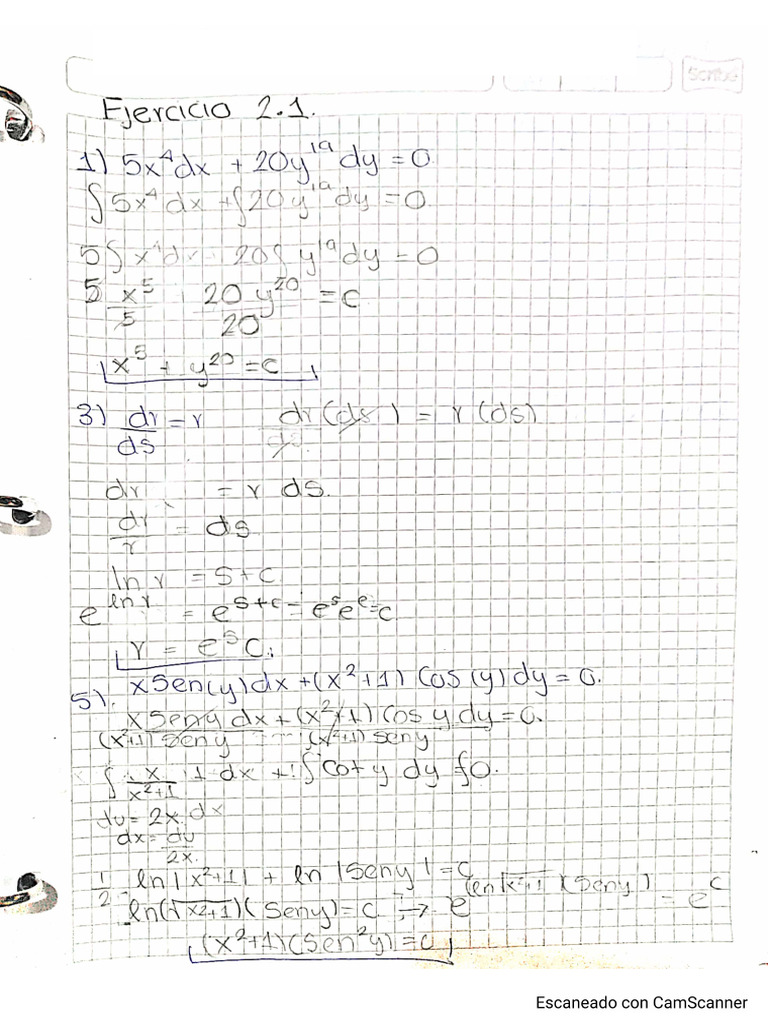 Scribe
Ejercicio 2.1.
1) 5x⁴dx + 20y¹⁹dy = 0
∫5x⁴dx + ∫20y¹⁹dy = 0
5∫x⁴dx 20∫y¹⁹dy = 0
5 x⁵/5 20 y²⁰/20 = c
x⁵ + y²⁰ = c
3) dr/ds = r dr(ds)/ds = r(ds)
dr = r ds.
dr/r = ds
ln r = s + c
e^(ln r) = e^(s+c) = eˢeᶜ=c
r = eˢc.
5). xsen(y)dx + (x²+1) cos(y)dy = 0.
xseny dx/(x²+1)seny + (x²+1)cos y dy/(x²+1)seny = 0.
∫ x/(x²+1) dx + ∫cot y dy ∫0.
du = 2x dx
dx = du/2x.
1/2 ln|x²+1| + ln |seny| = c
ln(√x²+1)(seny) = c → e^(ln√x²+1)(seny) = eᶜ
(x²+1)(sen²y) = c
Escaneado con CamScanner